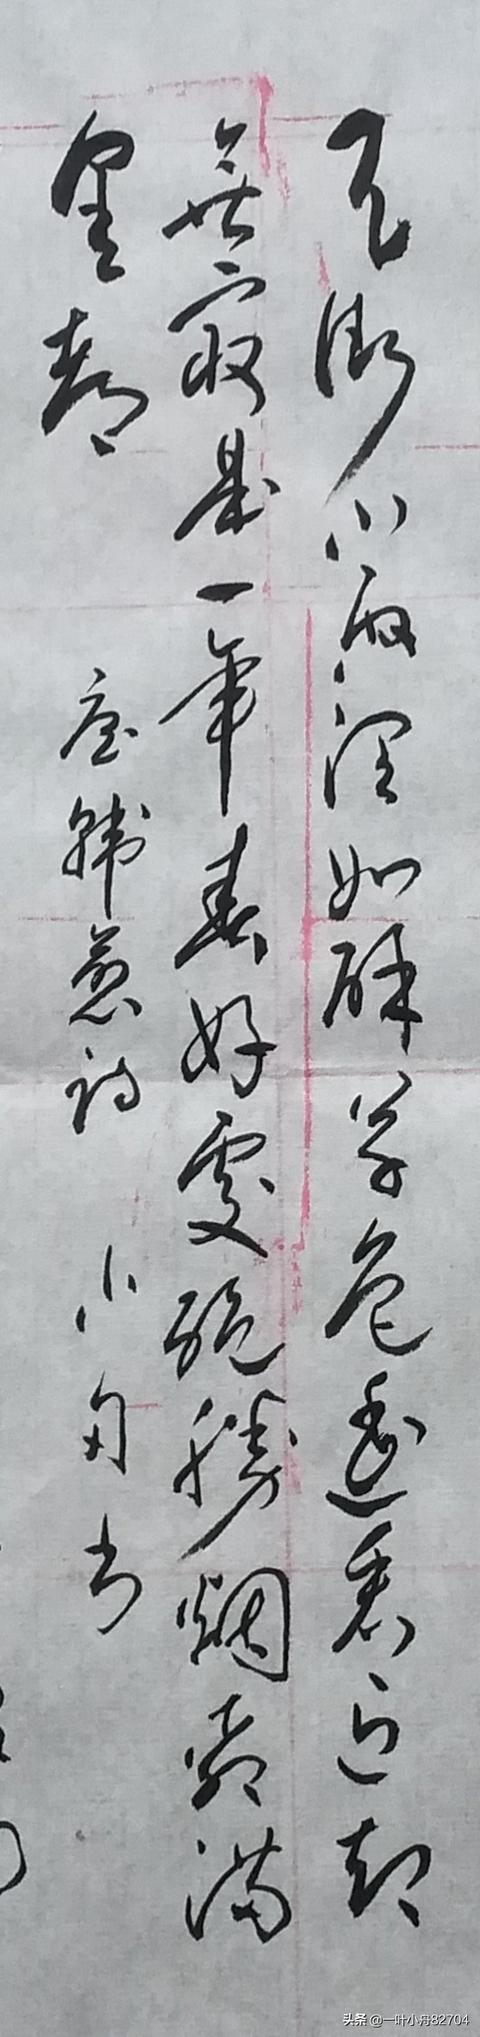 天街小雨润如酥草色遥看近却
無最是一年春好處絕勝烟柳满
皇都 唐韩愈诗 小丹书
头条 @一叶小丹82704